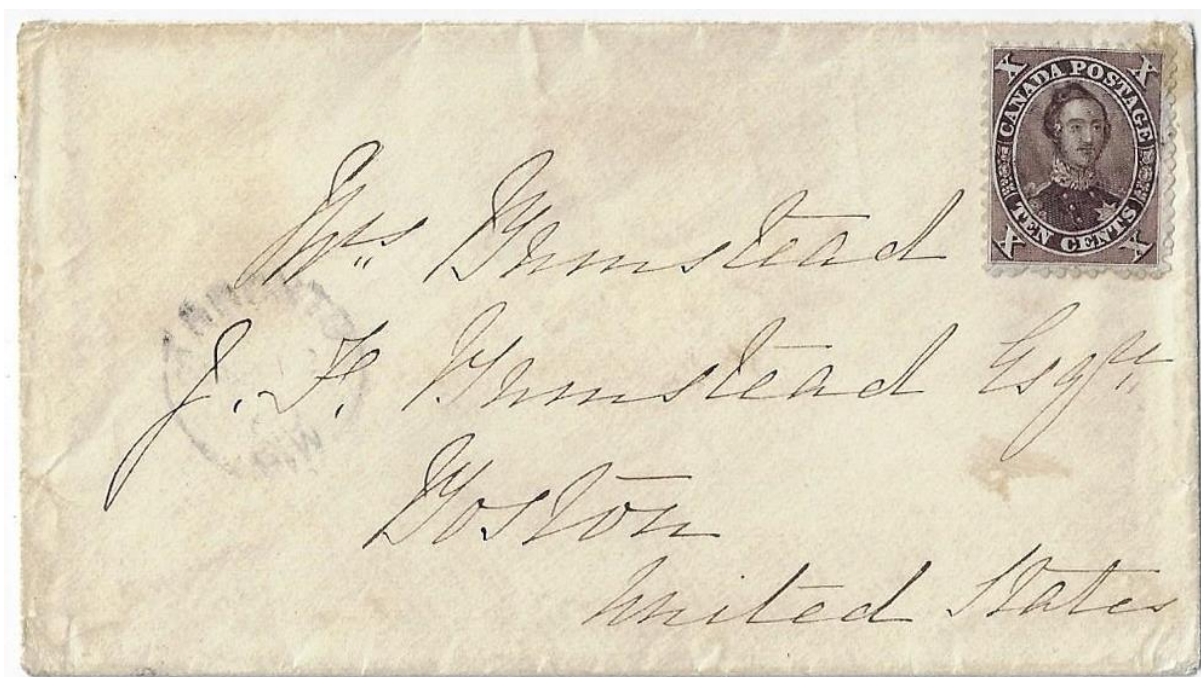 X CANADA POSTAGE X
X TEN CENTS X
Mrs Bumstead
J. F. Bumstead Esqre
Boston
United States